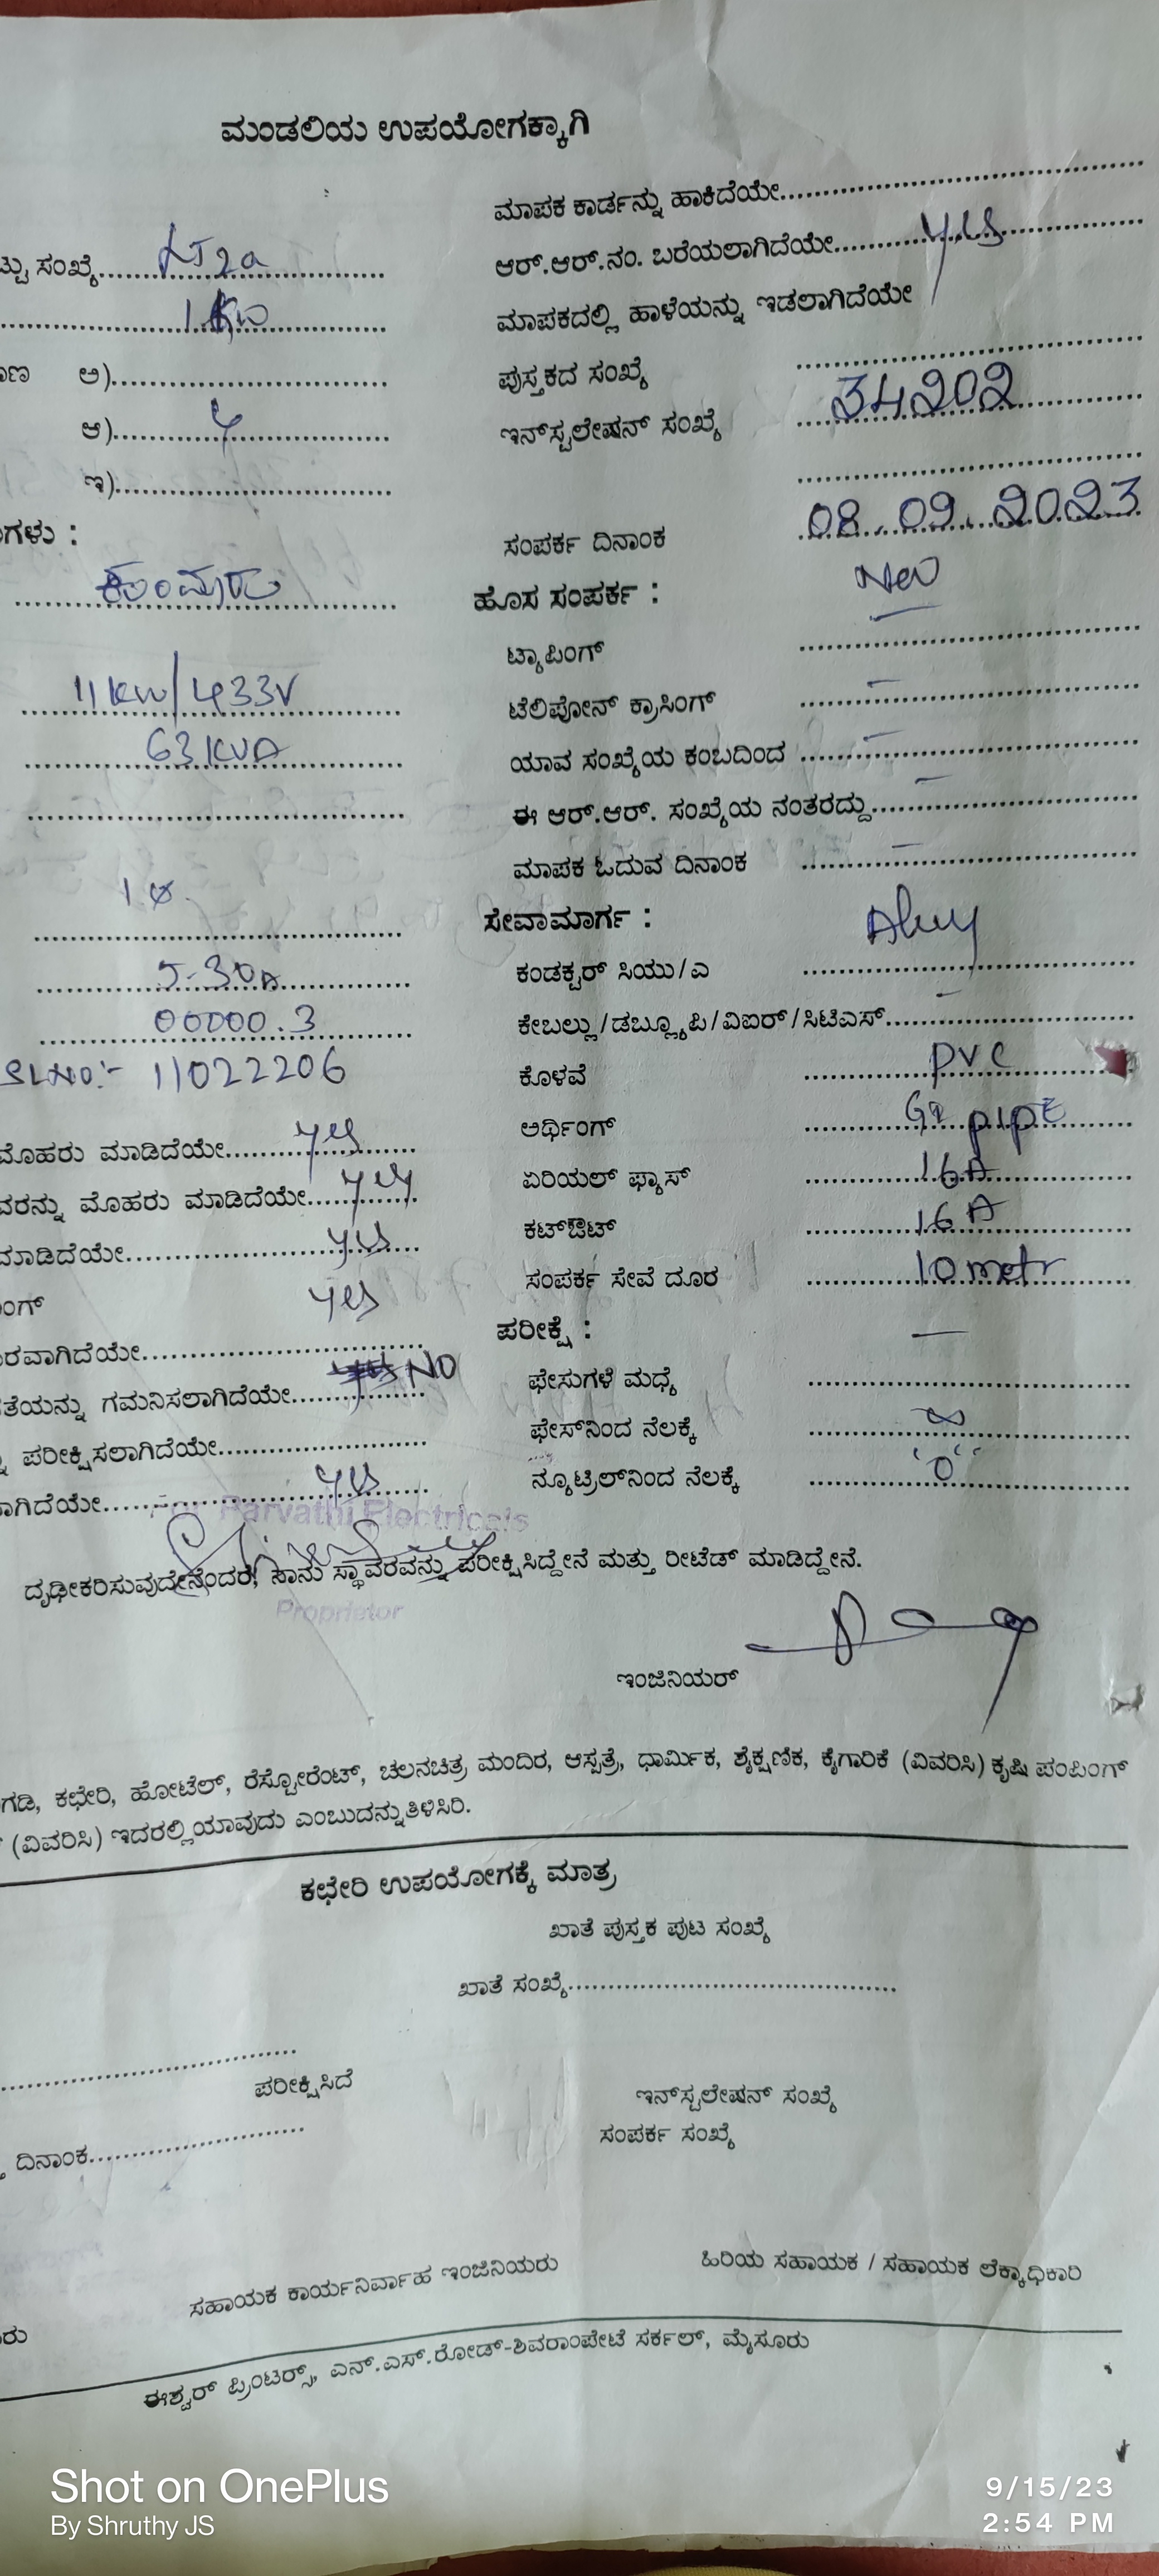 ಮಂಡಲಿಯ ಉಪಯೋಗಕ್ಕಾಗಿ
ಟ್ಟು ಸಂಖ್ಯೆ
1 KW
ಅ)
ಆ) 4
ಇ)
ಗಳು :
11 KW/433V
63 KVA
1 ø
5-30A
00000.3
SL NO:- 11022206
ಮೊಹರು ಮಾಡಿದೆಯೇ yes
ವರನ್ನು ಮೊಹರು ಮಾಡಿದೆಯೇ yes
ಮಾಡಿದೆಯೇ yes
ಂಗ್ yes
ರವಾಗಿದೆಯೇ
ತೆಯನ್ನು ಗಮನಿಸಲಾಗಿದೆಯೇ NO
ಪರೀಕ್ಷಿಸಲಾಗಿದೆಯೇ
ಾಗಿದೆಯೇ yes
ಮಾಪಕ ಕಾರ್ಡನ್ನು ಹಾಕಿದೆಯೇ
ಆರ್.ಆರ್.ನಂ. ಬರೆಯಲಾಗಿದೆಯೇ yes
ಮಾಪಕದಲ್ಲಿ ಹಾಳೆಯನ್ನು ಇಡಲಾಗಿದೆಯೇ
ಪುಸ್ತಕದ ಸಂಖ್ಯೆ
ಇನ್‌ಸ್ಟಲೇಷನ್ ಸಂಖ್ಯೆ 34202
ಸಂಪರ್ಕ ದಿನಾಂಕ 08.09.2023
ಹೊಸ ಸಂಪರ್ಕ : New
ಟ್ಯಾಪಿಂಗ್
ಟೆಲಿಪೋನ್ ಕ್ರಾಸಿಂಗ್ –
ಯಾವ ಸಂಖ್ಯೆಯ ಕಂಬದಿಂದ –
ಈ ಆರ್.ಆರ್. ಸಂಖ್ಯೆಯ ನಂತರದ್ದು –
ಮಾಪಕ ಓದುವ ದಿನಾಂಕ –
ಸೇವಾಮಾರ್ಗ :
ಕಂಡಕ್ಟರ್ ಸಿಯು/ಎ
ಕೇಬಲ್ಲು/ಡಬ್ಲ್ಯೂಪಿ/ವಿಐಆರ್/ಸಿಟಿಎಸ್ –
ಕೊಳವೆ PVC
ಅರ್ಥಿಂಗ್ GI pipe
ಏರಿಯಲ್ ಫ್ಯೂಸ್ 16A
ಕಟ್‌ಔಟ್ 16 A
ಸಂಪರ್ಕ ಸೇವೆ ದೂರ 10 metr
ಪರೀಕ್ಷೆ : –
ಫೇಸುಗಳ ಮಧ್ಯೆ
ಫೇಸ್‌ನಿಂದ ನೆಲಕ್ಕೆ ∞
ನ್ಯೂಟ್ರಲ್‌ನಿಂದ ನೆಲಕ್ಕೆ "0"
Parvathi Electricals
ದೃಢೀಕರಿಸುವುದೇನೆಂದರೆ, ನಾನು ಸ್ಥಾವರವನ್ನು ಪರೀಕ್ಷಿಸಿದ್ದೇನೆ ಮತ್ತು ರೀಟೆಡ್ ಮಾಡಿದ್ದೇನೆ.
Proprietor
ಇಂಜಿನಿಯರ್
ಗಡಿ, ಕಛೇರಿ, ಹೋಟೆಲ್, ರೆಸ್ಟೋರೆಂಟ್, ಚಲನಚಿತ್ರ ಮಂದಿರ, ಆಸ್ಪತ್ರೆ, ಧಾರ್ಮಿಕ, ಶೈಕ್ಷಣಿಕ, ಕೈಗಾರಿಕೆ (ವಿವರಿಸಿ) ಕೃಷಿ ಪಂಪಿಂಗ್
(ವಿವರಿಸಿ) ಇದರಲ್ಲಿ ಯಾವುದು ಎಂಬುದನ್ನು ತಿಳಿಸಿರಿ.
ಕಛೇರಿ ಉಪಯೋಗಕ್ಕೆ ಮಾತ್ರ
ಖಾತೆ ಪುಸ್ತಕ ಪುಟ ಸಂಖ್ಯೆ
ಖಾತೆ ಸಂಖ್ಯೆ
ಪರೀಕ್ಷಿಸಿದೆ
ಇನ್‌ಸ್ಟಲೇಷನ್ ಸಂಖ್ಯೆ
ದಿನಾಂಕ
ಸಂಪರ್ಕ ಸಂಖ್ಯೆ
ರು
ಸಹಾಯಕ ಕಾರ್ಯನಿರ್ವಾಹ ಇಂಜಿನಿಯರು
ಹಿರಿಯ ಸಹಾಯಕ / ಸಹಾಯಕ ಲೆಕ್ಕಾಧಿಕಾರಿ
ಈಶ್ವರ್ ಪ್ರಿಂಟರ್ಸ್, ಎನ್.ಎಸ್.ರೋಡ್-ಶಿವರಾಂಪೇಟೆ ಸರ್ಕಲ್, ಮೈಸೂರು
Shot on OnePlus
By Shruthy JS
9/15/23
2:54 PM